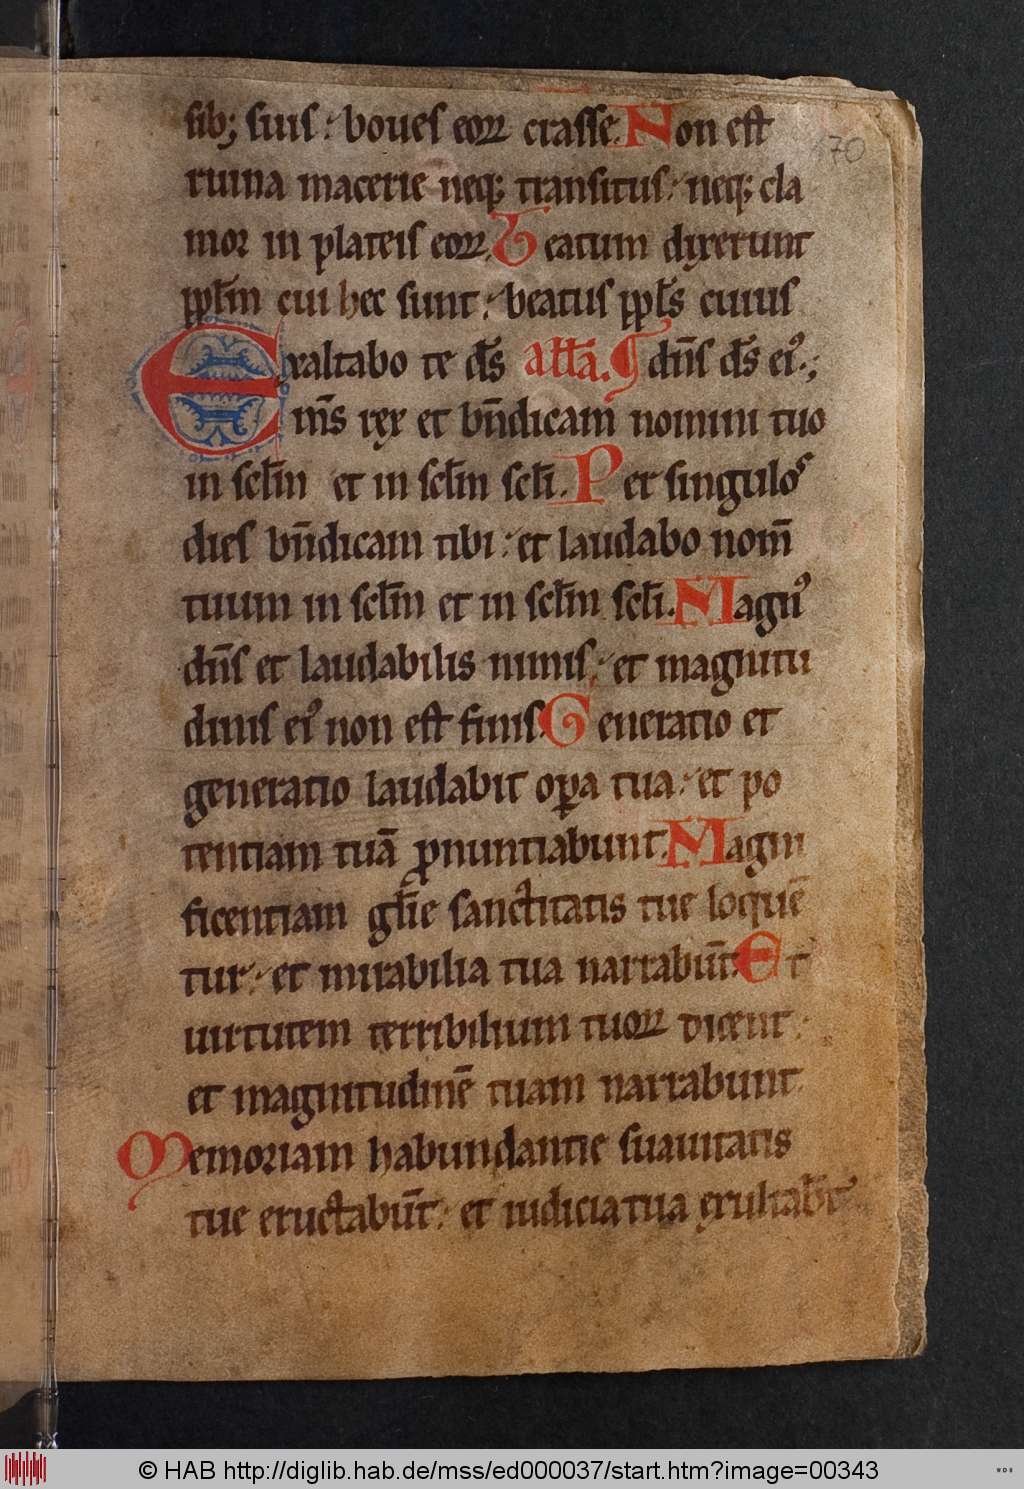 sib; suis : boues eoꝝ crasse. Non est
170
ruina macerie neq; transitus : neq; cla
mor in plateis eoꝝ. Beatum dixerunt
ppl̄m cui hec sunt : beatus ppl̄s cuius
Exaltabo te ds̄ all̄a. dn̄s ds̄ ei⁹.;
ms̄ rex et bn̄dicam nomini tuo
in sclm̄ et in sclm̄ scli̅. Per singulos
dies bn̄dicam tibi : et laudabo nom̄
tuum in sclm̄ et in sclm̄ scli̅. Magn⁹
dn̄s et laudabilis nimis : et magnitu
dinis ei⁹ non est finis. Generatio et
generatio laudabit oꝑa tua : et po
tentiam tuā ꝓnuntiabunt. Magni
ficentiam gl̄ie sanctitatis tue loquē
tur : et mirabilia tua narrabūt. Et
uirtutem terribilium tuoꝝ dicent :
et magnitudinē tuam narrabunt.
Memoriam habundantie suauitatis
tue eructabūt : et iudicia tua exultab̄t
© HAB http://diglib.hab.de/mss/ed000037/start.htm?image=00343